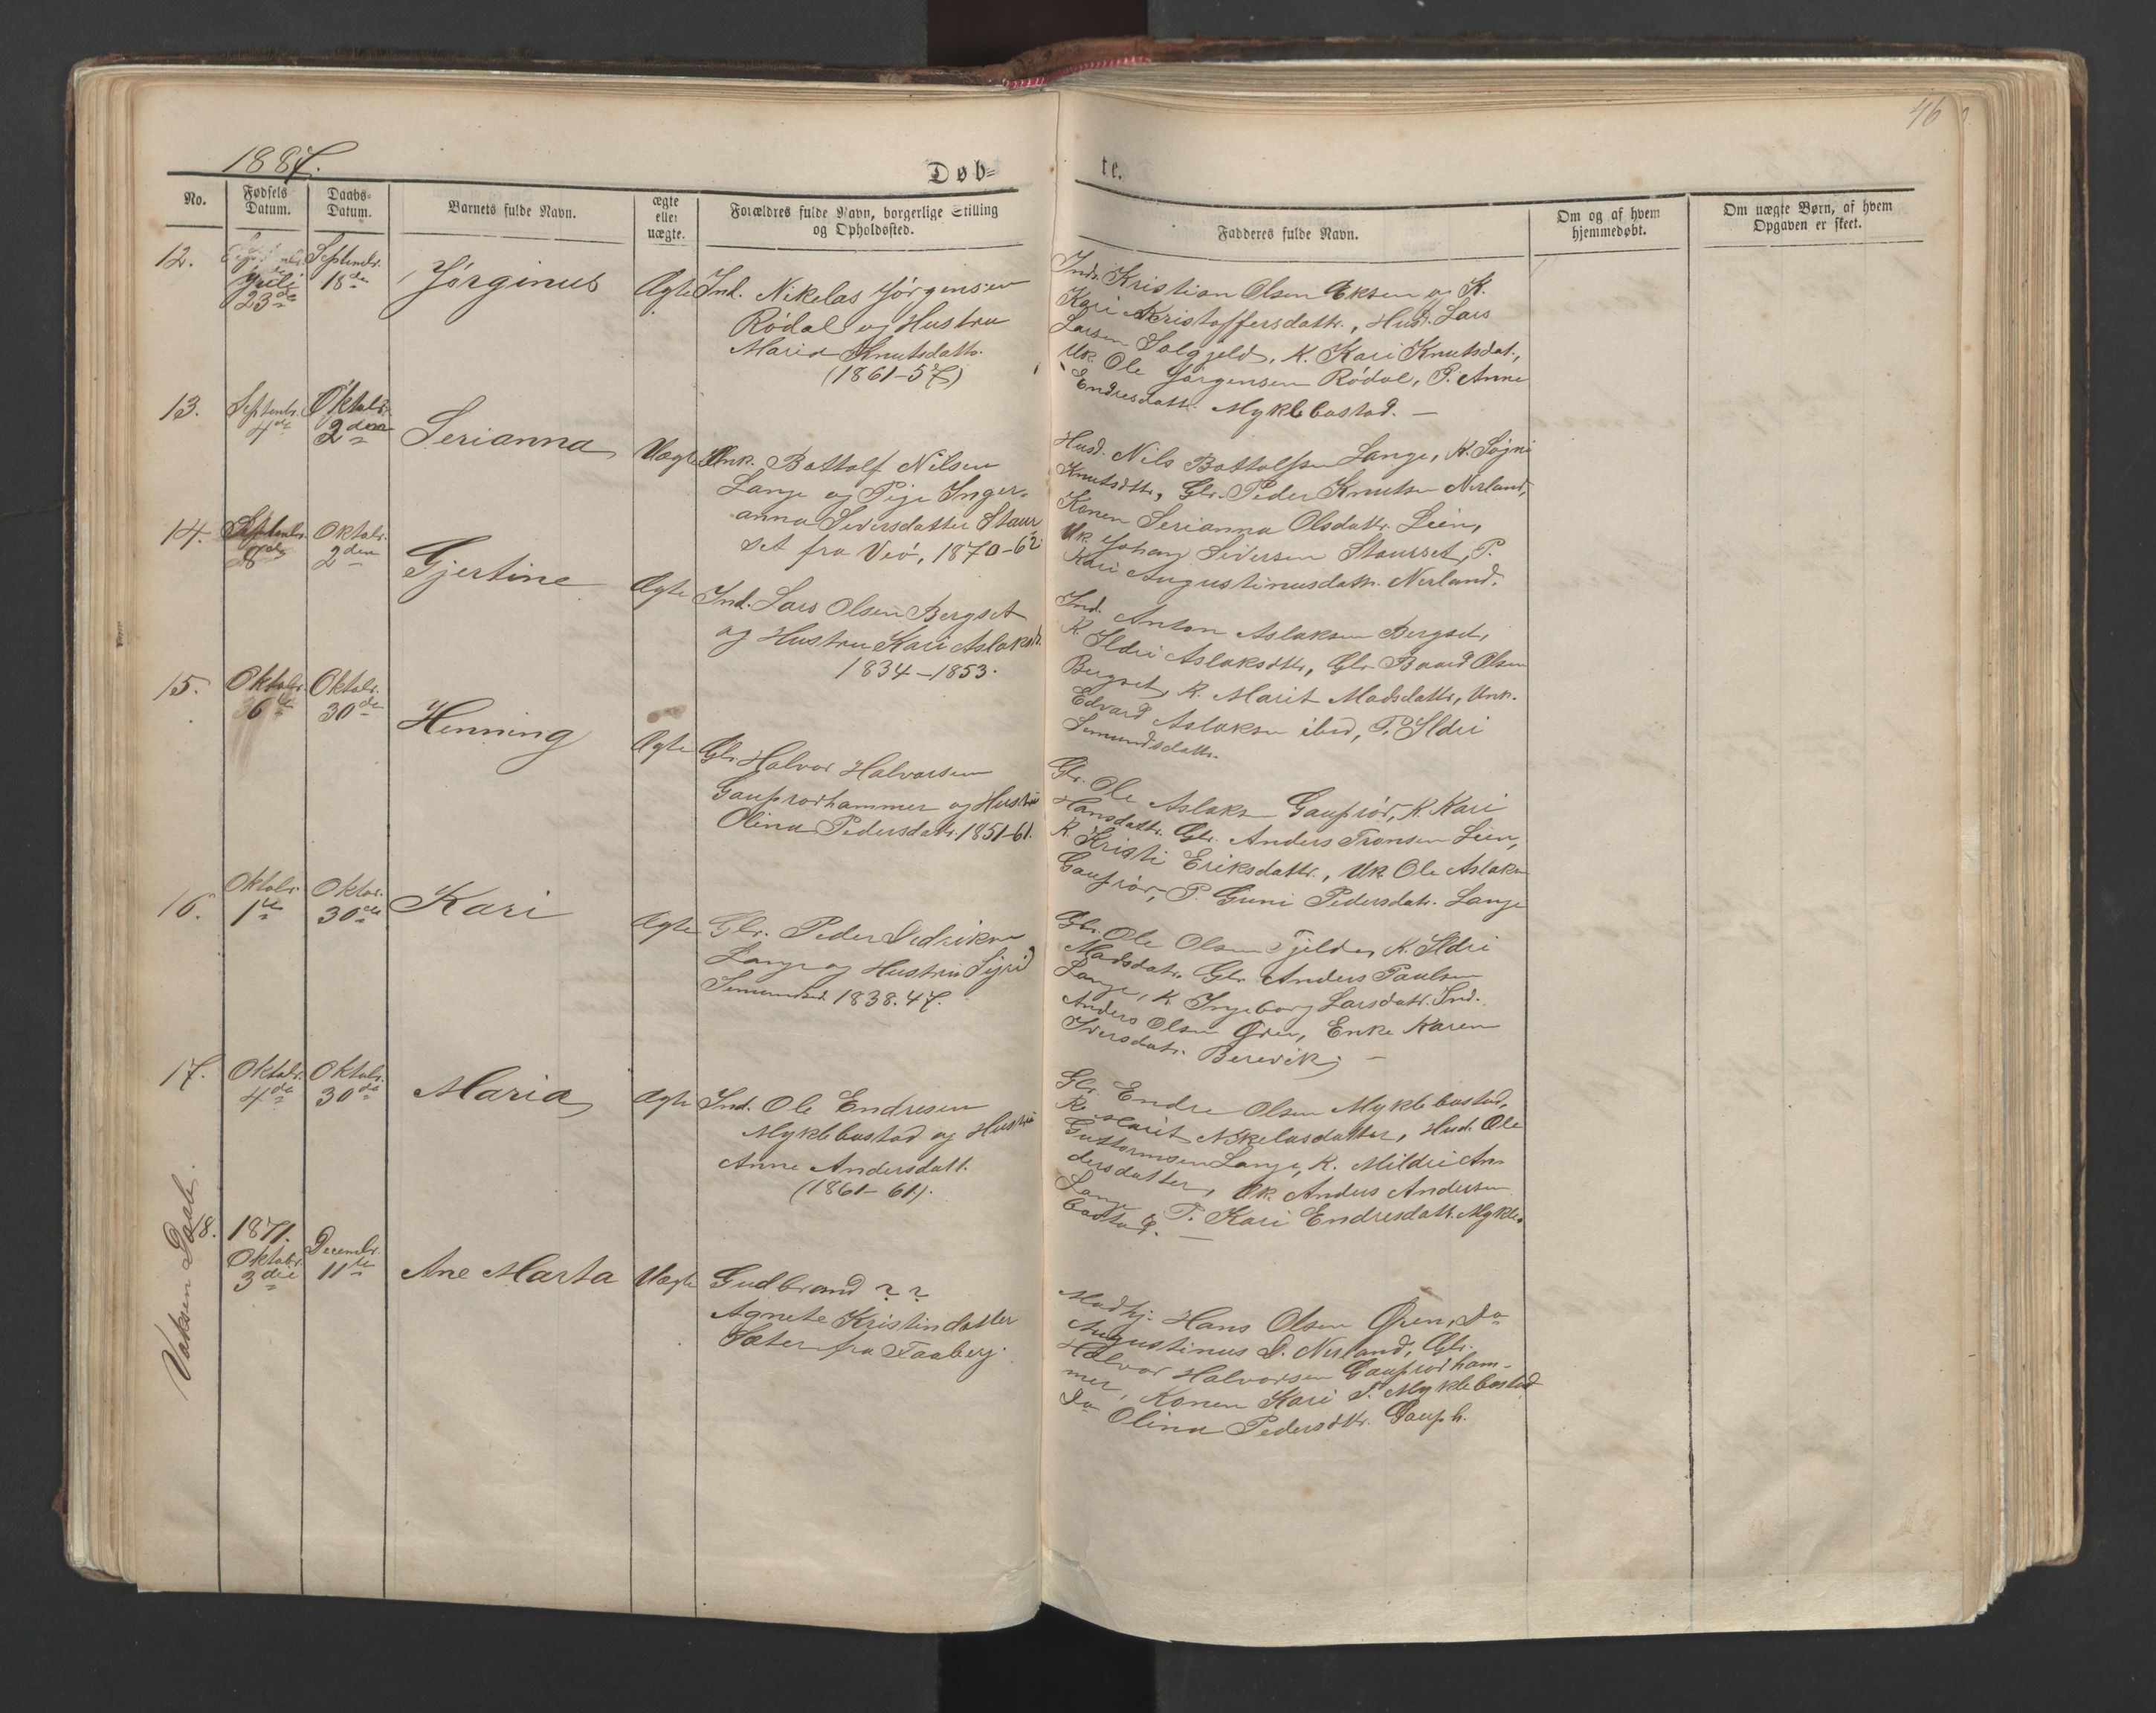 46
1887.
Døb=
te.
No.
Fødsels Datum.
Daabs-Datum.
Barnets fulde Navn.
ægte eller uægte.
Forældres fulde Navn, borgerlige Stilling og Opholdssted.
Fadderes fulde Navn.
Om og af hvem hjemmedøbt.
Om uægte Børn, af hvem Opgaven er skeet.
12.
Juli
23de
Septembr.
18de
Jørginus
Ægte
Ind. Nikelas Jørgensen
Rødal og Hustru
Maria Knutsdatr.
(1861-57)
Ind. Kristian Olsen Eksen og K.
Kari Kristoffersdatr., Husd. Lars
Larsen Solgjeld, K. Kari Knutsdat.,
Uk. Ole Jørgensen Rødal, P. Anne
Endresdatt. Myklebostad. —
13.
Septembr.
4de
Oktobr.
2den
Serianna
Uægte
Unk. Bottolf Nilsen
Lange og Pige Inger-
anna Siversdatter Staur-
set fra Veø, 1870-62
Husd. Nils Bottolfsen Lange, K. Søgni
Knutsdtr., Gbr. Peder Knutsen Nerland,
Konen Serianna Olsdatr. Lien,
Uk. Johan Siversen Staurset, P.
Kari Augustinusdatr. Nerland.
14.
Septembr.
8de
Oktobr.
2den
Gjertine
Ægte
Ind. Lars Olsen Bergset
og Hustru Kari Aslaksd.
1834-1853.
Ind. Anton Aslaksen Bergset,
K. Ildri Aslaksdtr., Gbr. Baard Olsen
Bergset, K. Marit Madsdatr., Unk.
Edvard Aslaksen ibid, P. Ildri
Semundsdatr.
15.
Oktobr.
6te
Oktobr.
30de
Henning
Ægte
Gbr. Halvor Halvorsen
Gauprørhammer og Hustru
Olina Pedersdatr. 1851-61.
Gbr. Ole Aslaksn Gauprør, K. Kari
Hansdatr. Gbr. Anders Tronsen Lien,
K. Kristi Eriksdatr., Uk. Ole Aslaksn
Gauprør, P. Guni Pedersdatr. Lange
16.
Oktobr.
1te
Oktbr.
30de
Kari
Ægte
Gbr. Peder Dedriksn
Lange og Hustru Sigrid
Semundsd. 1838.47.
Gbr. Ole Olsen Tjelde, K. Ildri
Madsdatr. Gbr. Anders Paulsen
Lange, K. Ingeborg Larsdatr. Ind.
Anders Olsen Øren, Enke Karen
Iversdatr. Berevik. —
17.
Oktobr.
4de
Oktobr.
30de
Maria
Ægte
Ind. Ole Endresen
Myklebostad og Hustru
Anne Andersdatt.
(1861-61).
Gbr. Endre Olsen Myklebostad,
K. Marit Nikelasdatter, Husd. Ole
Guttormsen Lange, K. Mildri An-
dersdatter, Uk. Anders Andersen
Lange, P. Kari Endresdatt. Mykle-
bostad. —
Voksen Daab.
18.
1871.
Oktobr.
3die
Decembr.
11te
Ane Marta
Uægte
Gudbrand ? ?
Agnete Kristindatter
Sæter fra Faaberg.
Madhj. Hans Olsen Øren, Do
Augustinus O. Nerland, Gbr.
Halvor Halvorsen Gauprørham-
mer, Konen Kari S. Myklebostad
Do Olina Pedersdtr. Gauph.